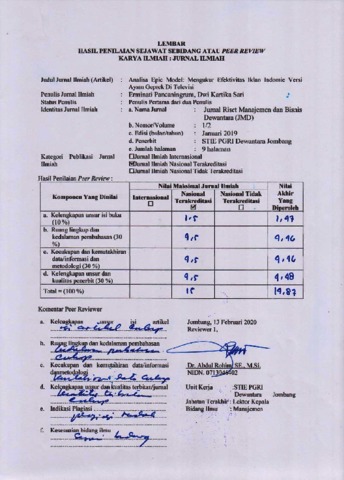 LEMBAR
HASIL PENILAIAN SEJAWAT SEBIDANG ATAU PEER REVIEW
KARYA ILMIAH : JURNAL ILMIAH
Judul Jurnal Ilmiah (Artikel) : Analisa Epic Model: Mengukur Efektivitas Iklan Indomie Versi
Ayam Geprek Di Televisi
Penulis Jurnal Ilmiah : Erminati Pancaningrum, Dwi Kartika Sari
Status Penulis : Penulis Pertama dari dua Penulis
Identitas Jurnal Ilmiah : a. Nama Jurnal : Jurnal Riset Manajemen dan Bisnis
Dewantara (JMD)
b. Nomor/Volume : 1/2
c. Edisi (bulan/tahun) : Januari 2019
d. Penerbit : STIE PGRI Dewantara Jombang
e. Jumlah halaman : 9 halaman
Kategori Publikasi Jurnal Ilmiah : Jurnal Ilmiah Internasional
Jurnal Ilmiah Nasional Terakreditasi
Jurnal Ilmiah Nasional Tidak Terakreditasi
Hasil Penilaian Peer Review :
Komponen Yang Dinilai
Nilai Maksimal Jurnal Ilmiah
Internasional
Nasional Terakreditasi
Nasional Tidak Terakreditasi
Nilai Akhir Yang Diperoleh
a. Kelengkapan unsur isi buku (10 %) 1,5 1,47
b. Ruang lingkup dan kedalaman pembahasan (30 %) 4,5 4,46
c. Kecukupan dan kemutakhiran data/informasi dan metodologi (30 %) 4,5 4,46
d. Kelengkapan unsur dan kualitas penerbit (30 %) 4,5 4,48
Total = (100 %) 15 14,87
Komentar Peer Reviewer
a. Kelengkapan unsur isi artikel
isi artikel
b. Ruang lingkup dan kedalaman pembahasan
c. Kecukupan dan kemutakhiran data/informasi dan metodologi
d. Kelengkapan unsur dan kualitas terbitan/jurnal
e. Indikasi Plagiasi
f. Kesesuaian bidang ilmu
Jombang, 13 Februari 2020
Reviewer 1,
Dr. Abdul Rohim, SE., M.Si.
Unit Kerja : STIE PGRI
Dewantara Jombang
Jabatan Terakhir : Lektor Kepala
Bidang Ilmu : Manajemen